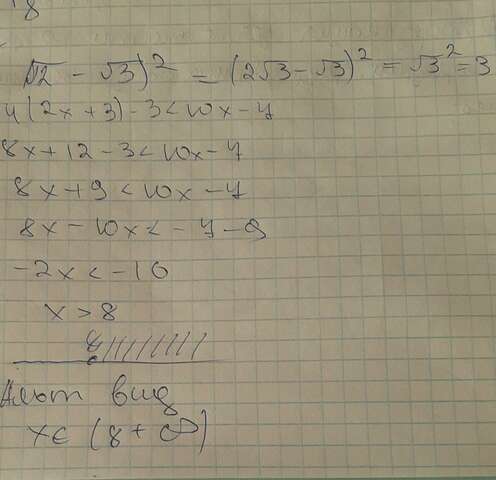 8
√12 - √3)² = (2√3 - √3)² = √3² = 3
4(2x+3)-3<10x-7
8x+12-3<10x-7
8x+9<10x-7
8x-10x<-7-9
-2x<-16
x>8
8
вид
x∈(8+∞)